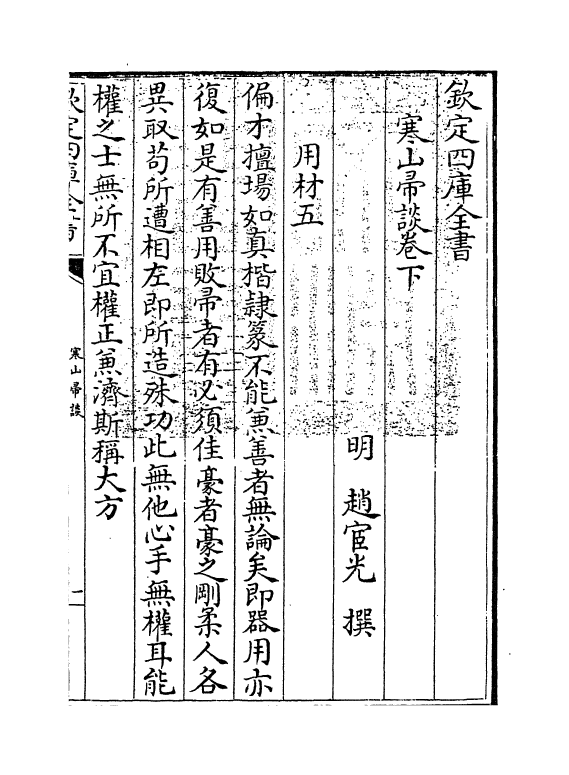 欽定四庫全書
寒山帚談卷下
明　趙宧光　撰
用材五
偏才擅場如真楷隷篆不能兼善者無論矣即器用亦
復如是有善用敗帚者有必須佳豪者豪之剛柔人各
異取苟所遭相左即所造殊功此無他心手無權耳能
權之士無所不宜權正兼濟斯稱大方
欽定四庫全書
寒山帚談